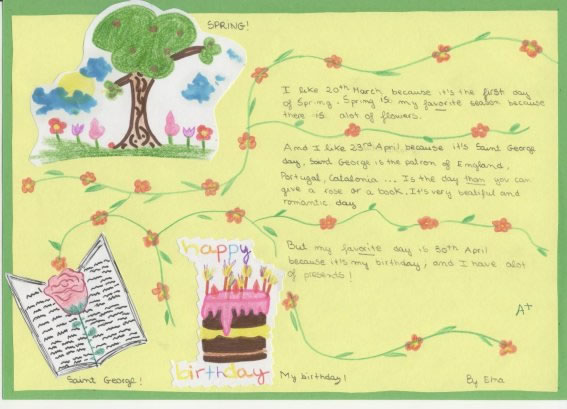 SPRING!
I like 20th March, because it's the first day
of Spring. Spring is my favorite season because
there is alot of flowers.
And I like 23rd April because it's Saint George
day, Saint George is the patron of England,
Portugal, Catalonia... Is the day than you can
give a rose or a book. It's very beatiful and
romantic day
But my favorite day is 30th April
because it's my birthday, and I have alot
of presends!
A+
happy
birthday
Saint George!
My birthday!
By Ema